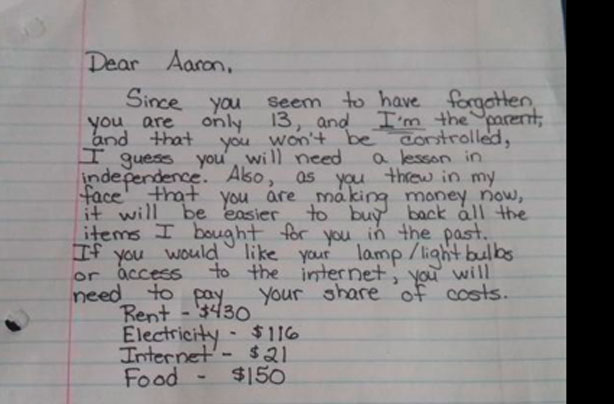 Dear Aaron,
Since you seem to have forgotten
you are only 13, and I'm the parent,
and that you won't be controlled,
I guess you will need a lesson in
independence. Also, as you threw in my
face that you are making money now,
it will be easier to buy back all the
items I bought for you in the past.
If you would like your lamp/light bulbs
or access to the internet, you will
need to pay your share of costs.
Rent - $430
Electricity - $116
Internet - $21
Food - $150